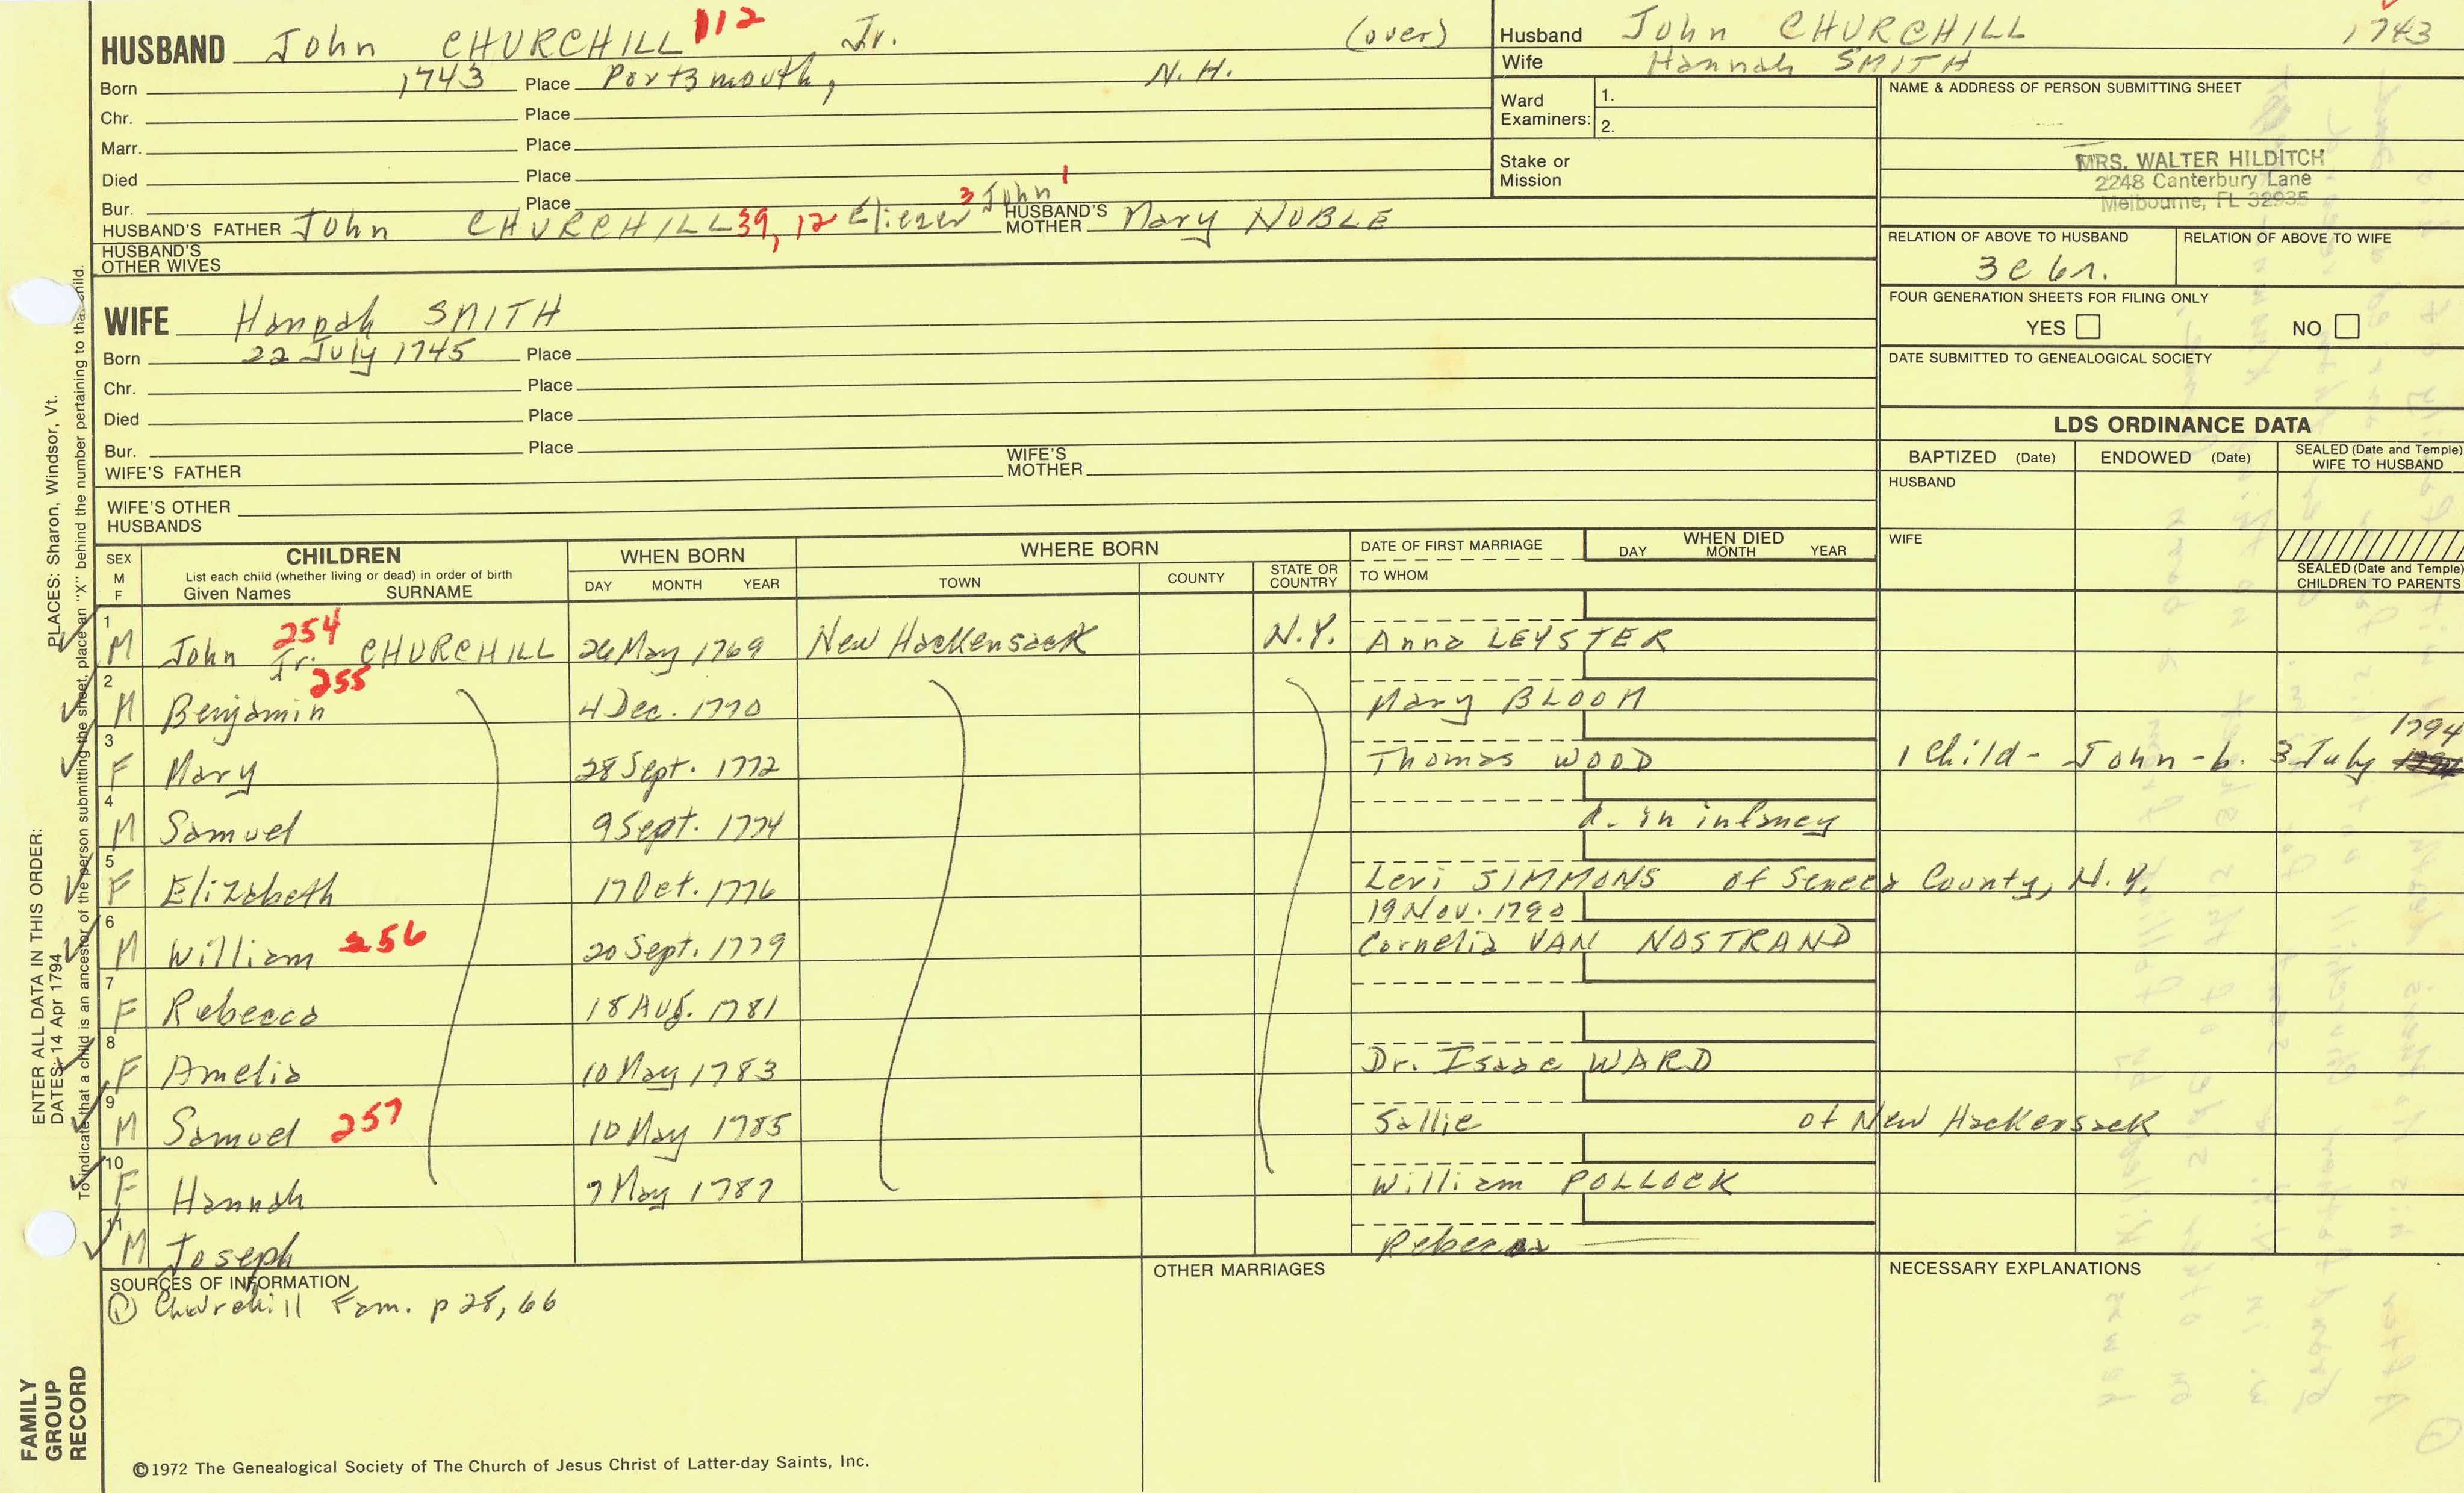 HUSBAND John CHURCHILL 112 Jr. (over)
Born 1743 Place Portsmouth, N.H.
Chr. Place
Marr. Place
Died Place
Bur. Place
HUSBAND'S FATHER John CHURCHILL 39, 12 Eliezer 3 John 1 HUSBAND'S MOTHER Mary NOBLE
HUSBAND'S OTHER WIVES
WIFE Hannah SMITH
Born 22 July 1745 Place
Chr. Place
Died Place
Bur. Place
WIFE'S FATHER WIFE'S MOTHER
WIFE'S OTHER HUSBANDS
Husband John CHURCHILL 1743
Wife Hannah SMITH
Ward Examiners: 1.
2.
Stake or Mission
NAME & ADDRESS OF PERSON SUBMITTING SHEET
MRS. WALTER HILDITCH
2248 Canterbury Lane
Melbourne, FL 32935
RELATION OF ABOVE TO HUSBAND RELATION OF ABOVE TO WIFE
3c 6r.
FOUR GENERATION SHEETS FOR FILING ONLY
YES NO
DATE SUBMITTED TO GENEALOGICAL SOCIETY
LDS ORDINANCE DATA
BAPTIZED (Date) ENDOWED (Date) SEALED (Date and Temple) WIFE TO HUSBAND
HUSBAND
WIFE
SEALED (Date and Temple) CHILDREN TO PARENTS
SEX M F CHILDREN WHEN BORN WHERE BORN DATE OF FIRST MARRIAGE WHEN DIED
List each child (whether living or dead) in order of birth
Given Names SURNAME DAY MONTH YEAR TOWN COUNTY STATE OR COUNTRY TO WHOM DAY MONTH YEAR
1 M John Jr. 254 CHURCHILL 26 May 1769 New Hackensack N.Y. Anna LEYSTER
2 M Benjamin 255 4 Dec. 1770 Mary BLOOM
3 F Mary 28 Sept. 1772 Thomas WOOD 1 Child - John - b. 3 July 1794
4 M Samuel 9 Sept. 1774 d. in infancy
5 F Elizabeth 17 Oct. 1776 Levi SIMMONS of Seneca County, N.Y.
19 Nov. 1790
6 M William 256 20 Sept. 1779 Cornelia VAN NOSTRAND
7 F Rebecca 18 Aug. 1781
8 F Amelia 10 May 1783 Dr. Isaac WARD
9 M Samuel 257 10 May 1785 Sallie of New Hackensack
10 F Hannah 7 May 1787 William POLLOCK
11 M Joseph Rebecca
SOURCES OF INFORMATION
① Churchill Fam. p 28, 66
OTHER MARRIAGES
NECESSARY EXPLANATIONS
©1972 The Genealogical Society of The Church of Jesus Christ of Latter-day Saints, Inc.
FAMILY GROUP RECORD
ENTER ALL DATA IN THIS ORDER:
DATES: 14 Apr 1794 PLACES: Sharon, Windsor, Vt.
To indicate that a child is an ancestor of the person submitting the sheet, place an "X" behind the number pertaining to that child.